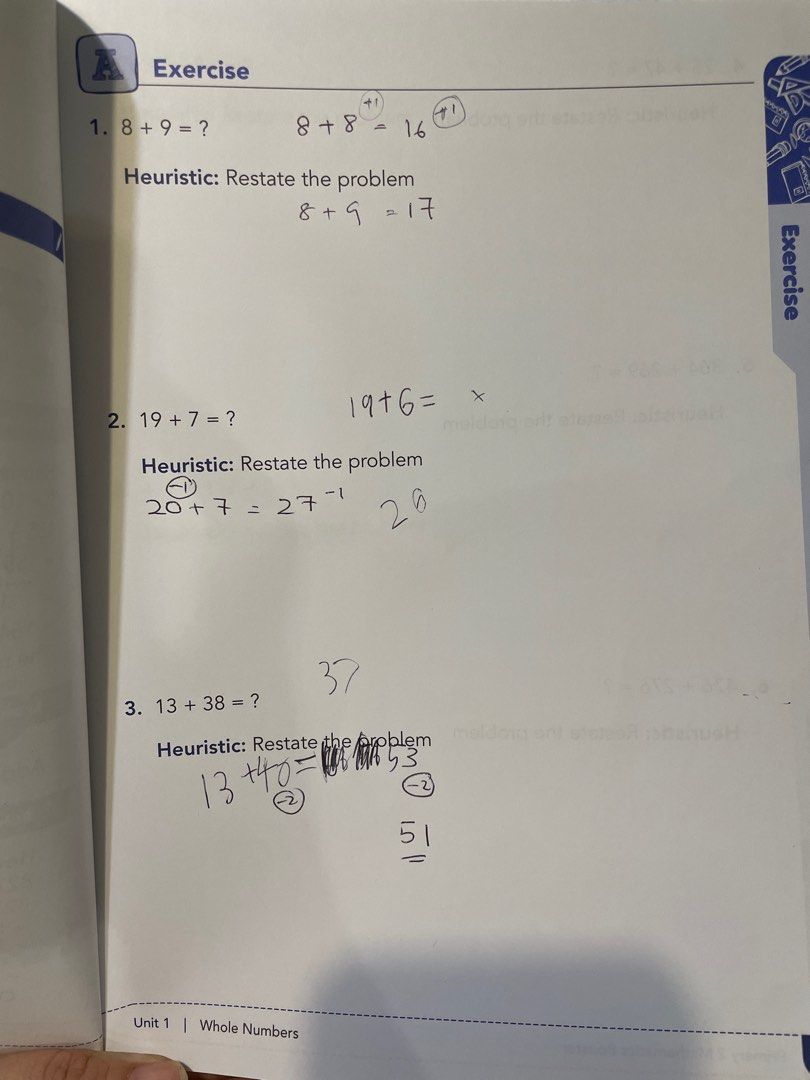 A Exercise
+1
1. 8 + 9 = ? 8 + 8 = 16 +1
Heuristic: Restate the problem
8 + 9 = 17
Exercise
19+6= x
2. 19 + 7 = ?
Heuristic: Restate the problem
-1
20 + 7 = 27 -1 26
37
3. 13 + 38 = ?
Heuristic: Restate the problem
13 +40= 53
-2 -2
51
Unit 1 | Whole Numbers